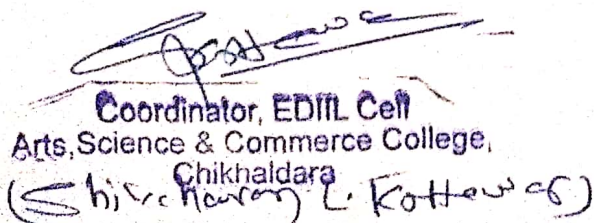 Coordinator, EDIIL Cell
Arts,Science & Commerce College,
Chikhaldara
(Shivcharan L. Kottewar)